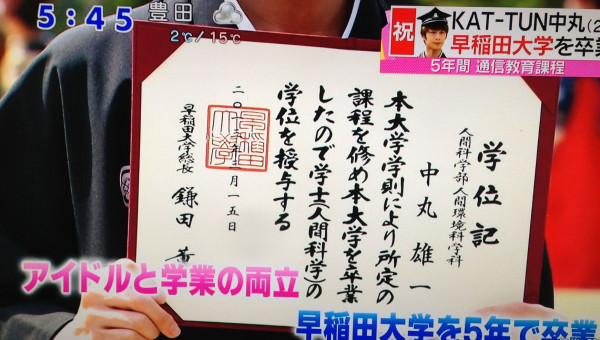 5:45
豊田
2℃/15℃
祝
KAT-TUN中丸(2
早稲田大学を卒業
5年間 通信教育課程
学位記
人間科学部人間環境科学科
中丸雄一
本大学学則により所定の
課程を修め本大学を卒業
したので学士(人間科学)の
学位を授与する
月一五日
早稲田大学総長 鎌田
アイドルと学業の両立
早稲田大学を5年で卒業